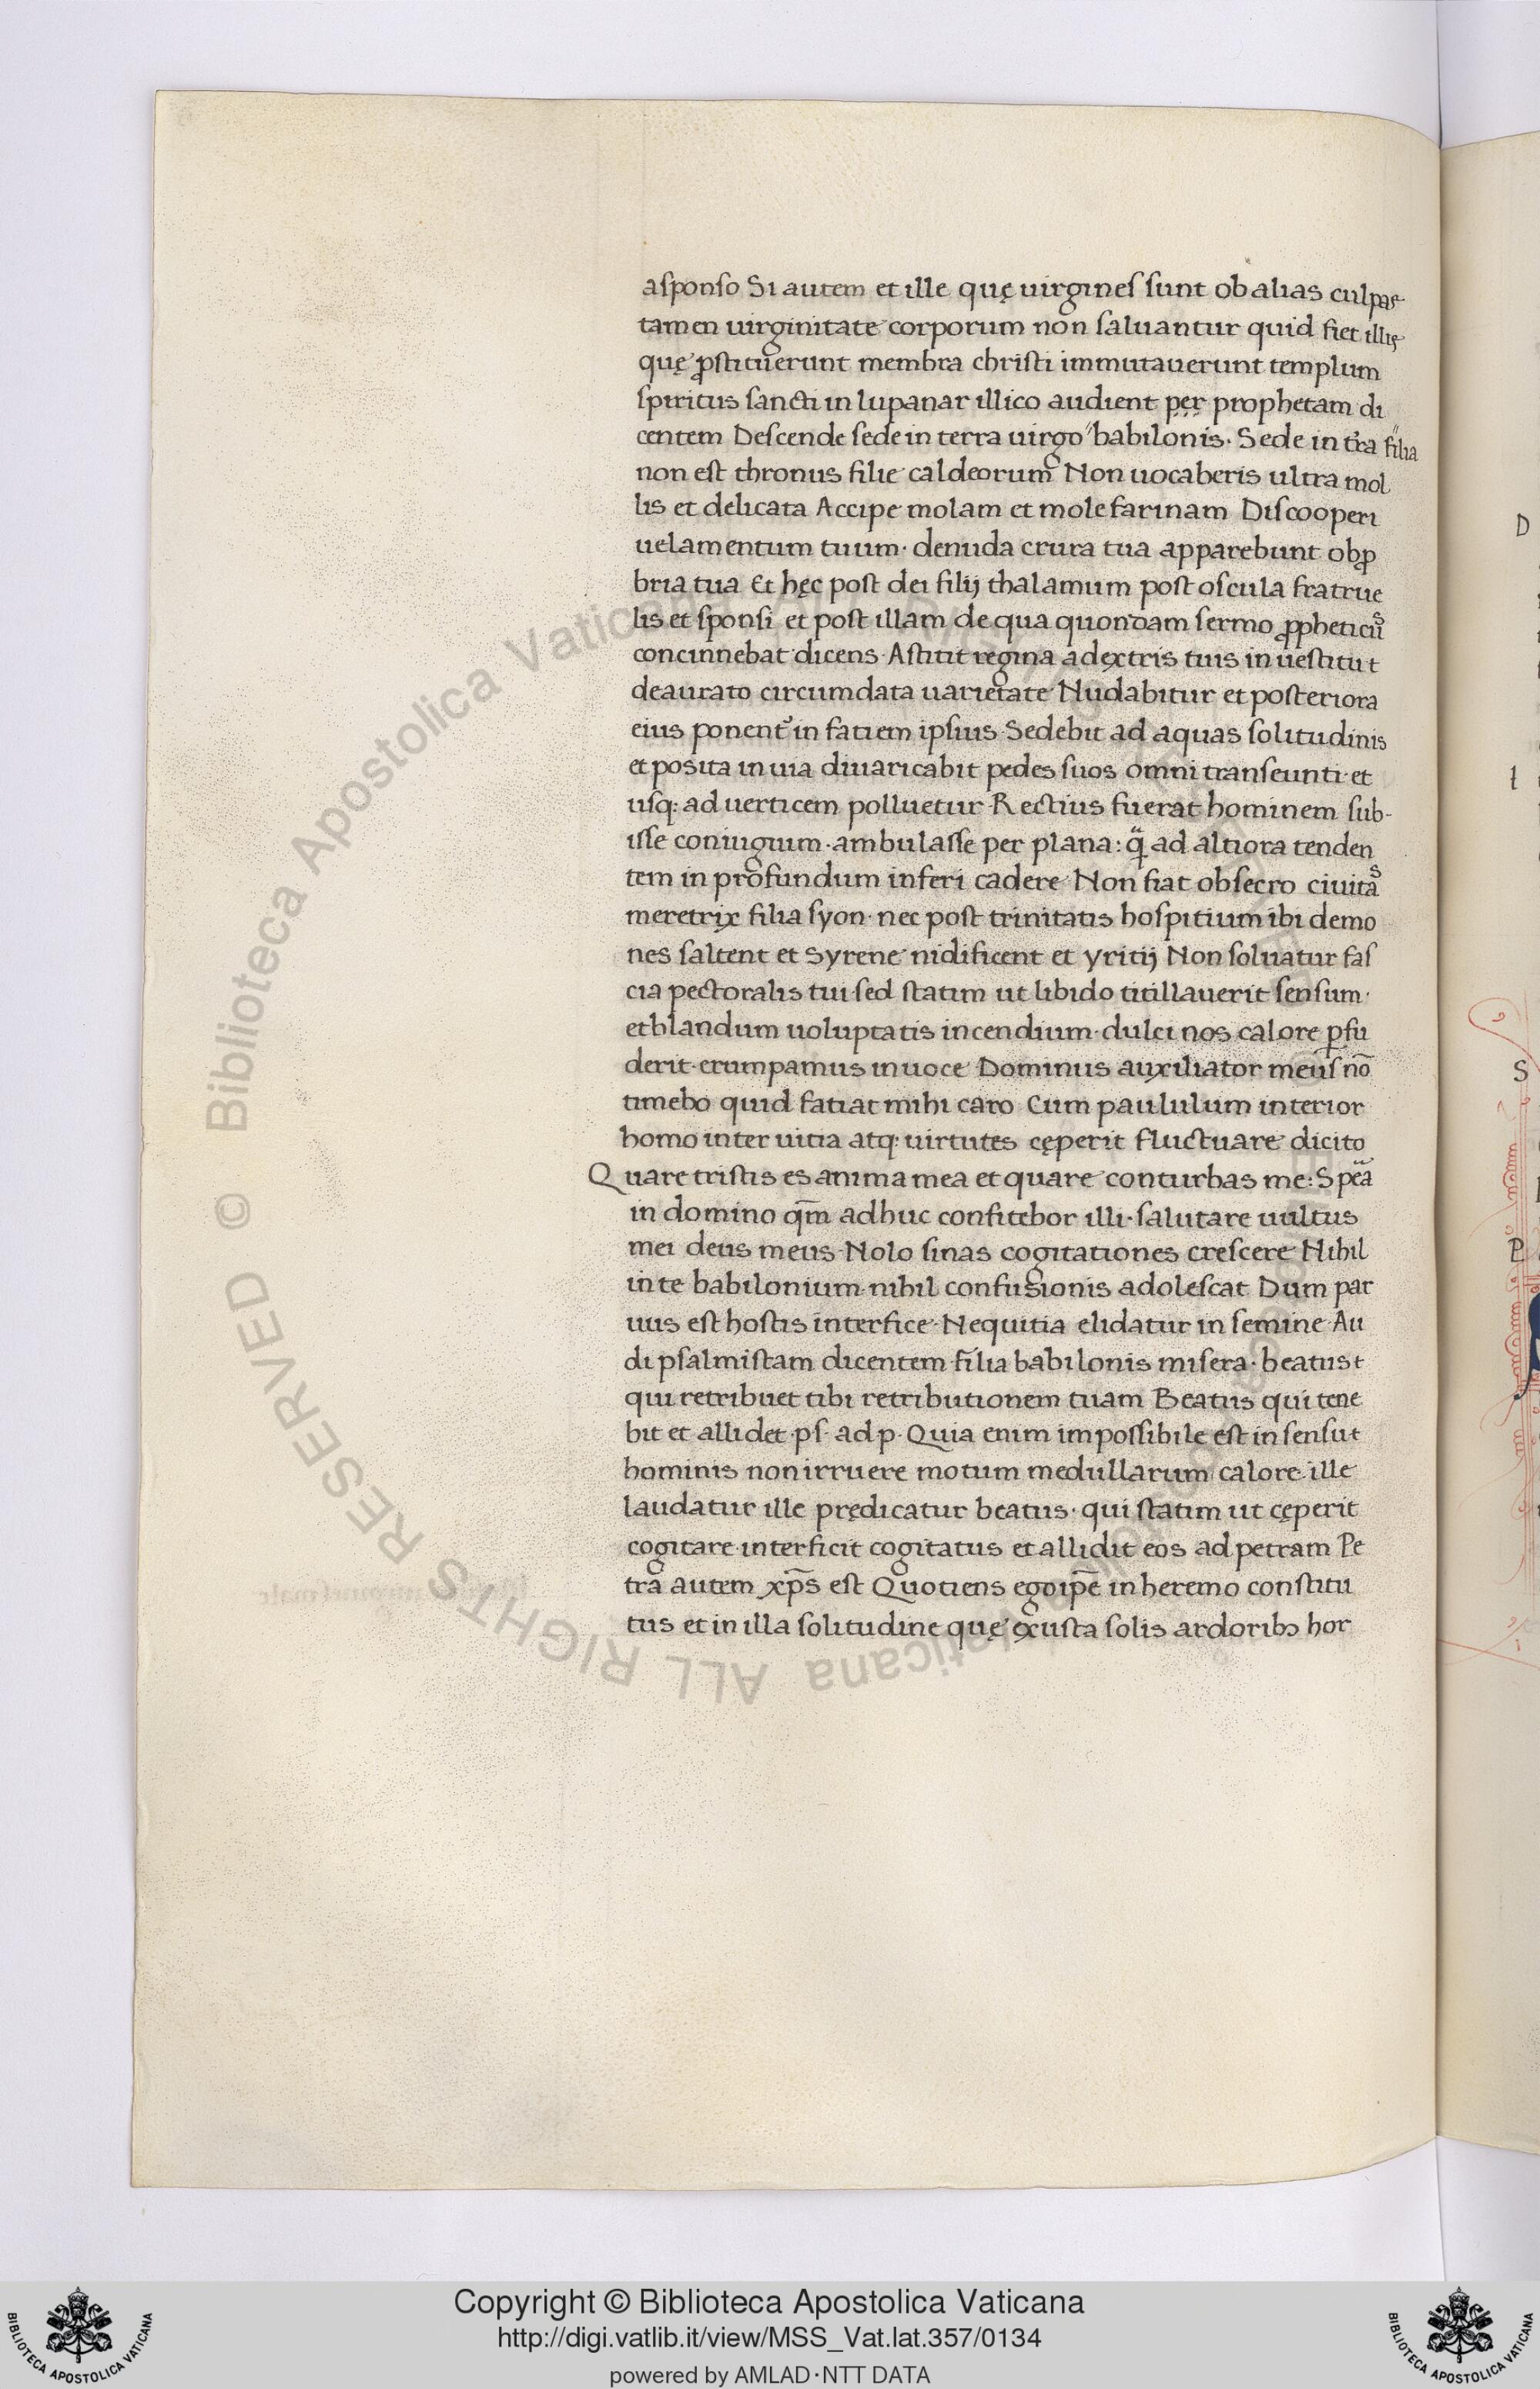 asponso Si autem et ille quę uirgines sunt ob alias culpas
tamen uirginitate corporum non saluantur quid fiet illis
quę ꝓstituerunt membra christi immutauerunt templum
spiritus sancti in lupanar illico audient per prophetam di
centem Descende sede in terra uirgo babilonis · Sede in tr̃a filia
non est thronus filie caldeorum Non uocaberis ultra mol
lis et delicata Accipe molam et mole farinam Discooperi
uelamentum tuum · denuda crura tua apparebunt obꝓ
bria tua Et hęc post dei filij thalamum post oscula fratrue
lis et sponsi et post illam de qua quondam sermo ꝓpheticuˢ
concinnebat dicens · Astitit regina adextris tuis in uestitu t
deaurato circumdata uarietate Nudabitur et posteriora
eius ponent᷑ in fatiem ipsius · Sedebit ad aquas solitudinis
et posita in uia diuaricabit pedes suos omni transeunti et
usq: ad uerticem polluetur · Rectius fuerat hominem sub-
isse coniugium · ambulasse per plana : qᷓ ad altiora tenden
tem in profundum inferi cadere Non fiat obsecro ciuitaˢ
meretrix filia syon · nec post trinitatis hospitium ibi demo
nes saltent et Syrene nidificent et yritij Non soluatur fas
cia pectoralis tui sed statim ut libido titillauerit sensum ·
et blandum uoluptatis incendium · dulci nos calore ꝑfu
derit · erumpamus in uoce Dominus auxiliator meus nō
timebo quid fatiat mihi caro Cum paululum interior
homo inter uitia atq: uirtutes cęperit fluctuare dicito
Quare tristis es anima mea et quare conturbas me : Speᷓa
in domino qm̄ adhuc confitebor illi · salutare uultus
mei deus meus · Nolo sinas cogitationes crescere Nihil
in te babilonium · nihil confusionis adolescat Dum par
uus est hostis interfice · Nequitia elidatur in semine · Au
di psalmistam dicentem filia babilonis misera · beatus t
qui retribuet tibi retributionem tuam Beatus qui tene
bit et allidet · p s · ad p · Quia enim impossibile est in sensu t
hominis non irruere motum medullarum calore · ille
laudatur ille prędicatur beatus · qui statim ut cęperit
cogitare · interficit cogitatus et allidit eos ad petram Pe
tra autem xp̄s est Quotiens ego ip̄e in heremo constitu
tus et in illa solitudine quę exusta solis ardoribꝫ hor
D
t
S
P
Copyright © Biblioteca Apostolica Vaticana
http://digi.vatlib.it/view/MSS_Vat.lat.357/0134
powered by AMLAD·NTT DATA
BIBLIOTECA APOSTOLICA VATICANA
BIBLIOTECA APOSTOLICA VATICANA
© Biblioteca Apostolica Vaticana ALL RIGHTS RESERVED